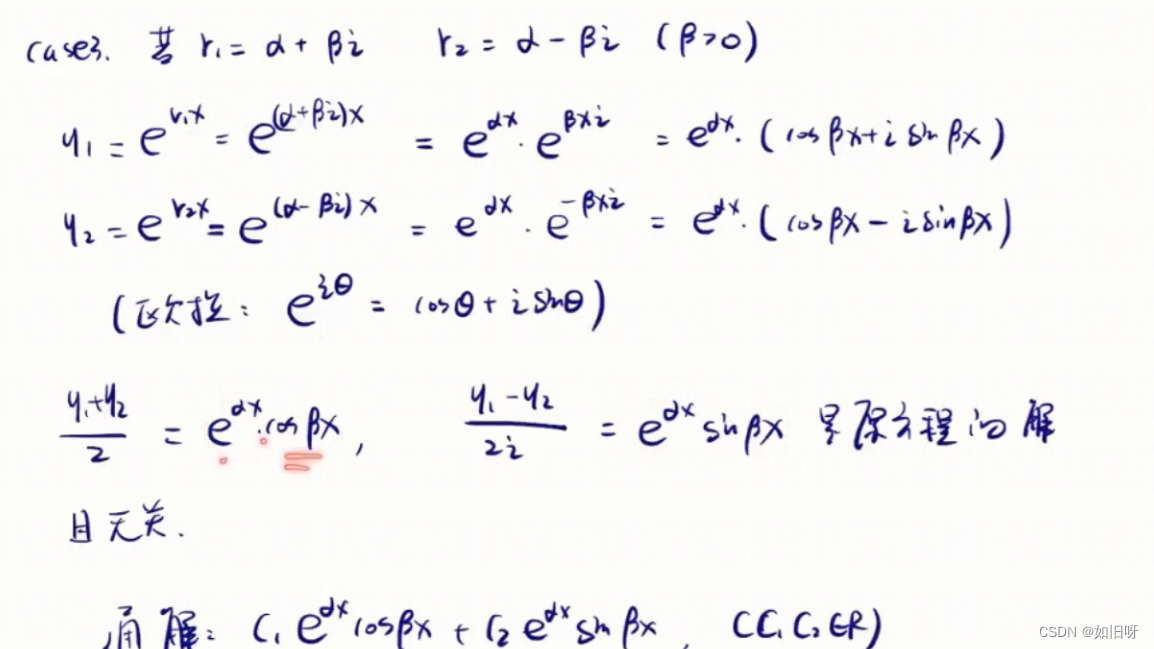 case3. 若 r₁ = α + βi r₂ = α - βi (β>0)
y₁ = e^{r₁x} = e^{(α+βi)x} = e^{αx} · e^{βxi} = e^{αx}·(cos βx + i sin βx)
y₂ = e^{r₂x} = e^{(α-βi)x} = e^{αx} · e^{-βxi} = e^{αx}·(cosβx - i sinβx)
(欧拉: e^{iθ} = cosθ + i sinθ)
(y₁+y₂)/2 = e^{αx}·cos βx, (y₁-y₂)/2i = e^{αx} sin βx 是原方程的解
且无关.
通解: C₁ e^{αx} cosβx + C₂ e^{αx} sin βx, (C₁ C₂ ∈R)
CSDN @如旧呀